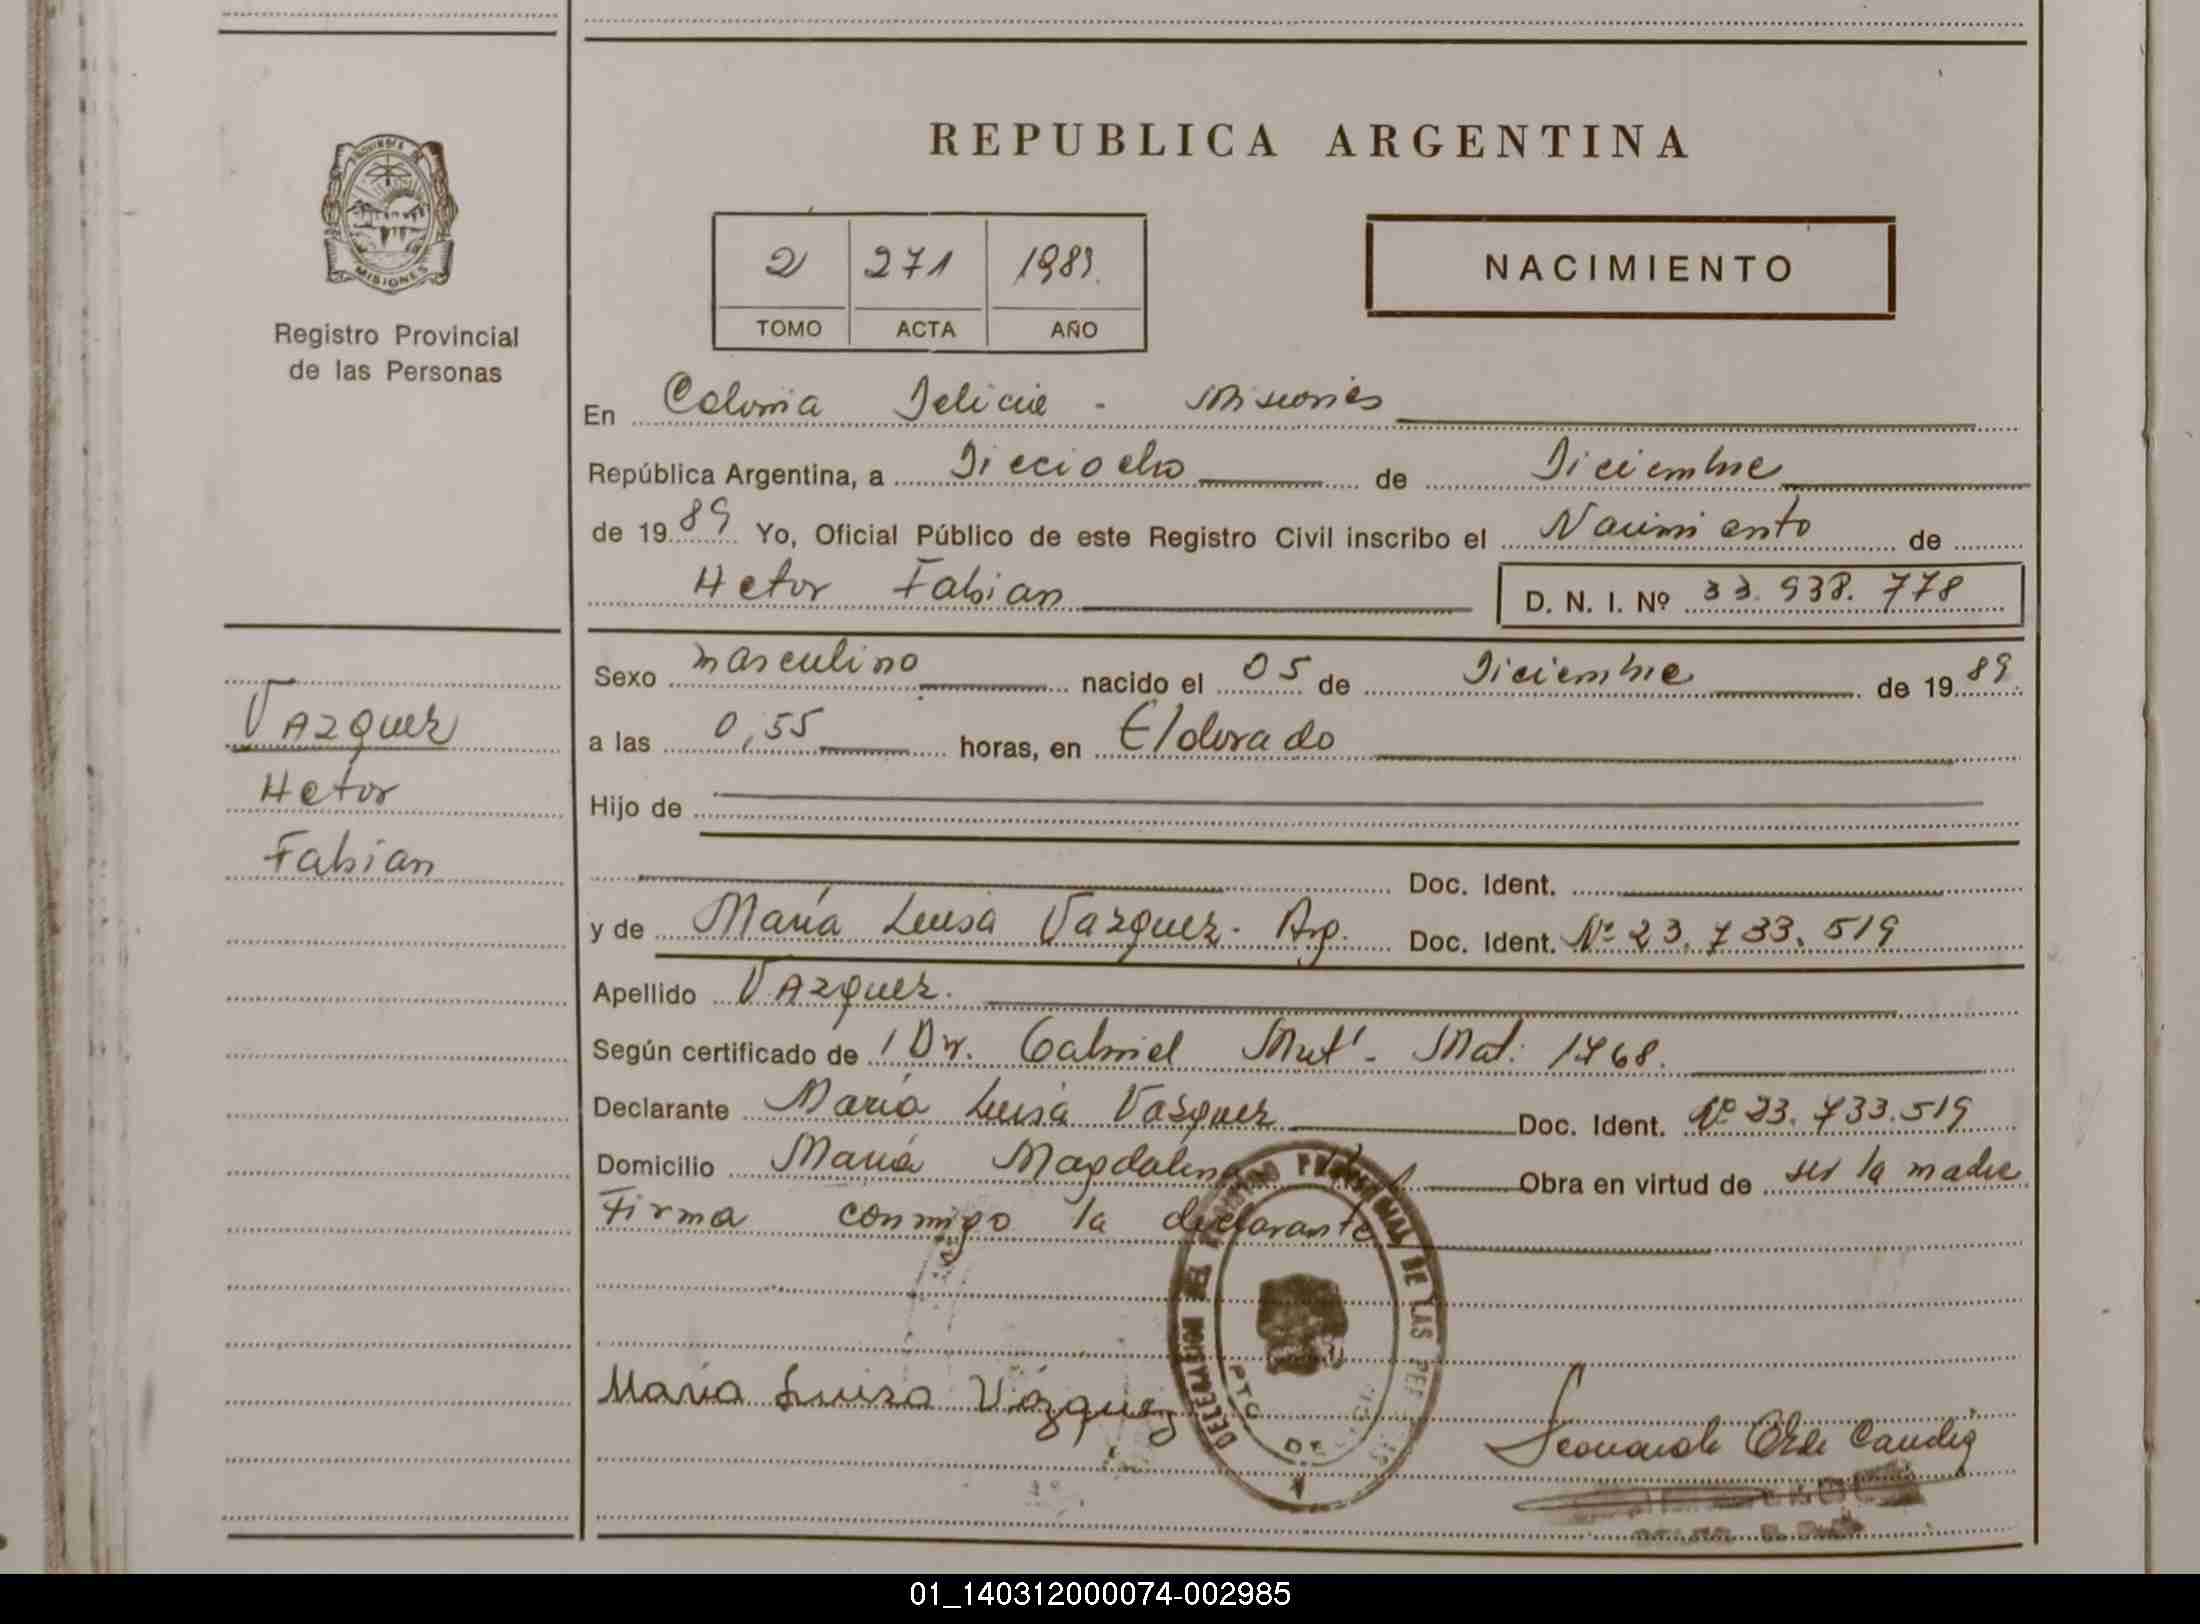 PROVINCIA DE
MISIONES
Registro Provincial
de las Personas
Vazquez
Hetor
Fabian
REPUBLICA ARGENTINA
2 271 1989.
TOMO ACTA AÑO
NACIMIENTO
En Colonia Delicia - Misiones
República Argentina, a Dieciocho de Diciembre
de 1989 Yo, Oficial Público de este Registro Civil inscribo el Nacimiento de
Hetor Fabian D. N. I. Nº 33.938.778
Sexo masculino nacido el 05 de Diciembre de 1989
a las 0,55 horas, en Eldorado
Hijo de
Doc. Ident.
y de María Luisa Vazquez - Arg. Doc. Ident. Nº 23.733.519
Apellido Vazquez.
Según certificado de / Dr. Gabriel - Mat: 1768.
Declarante María Luisa Vasquez Doc. Ident. Nº 23.733.519
Domicilio María Magdalena Obra en virtud de ser la madre
Firma conmigo la declarante
DELEGACION DEL REGISTRO PROVINCIAL DE LAS PERSONAS
PTO
María Luisa Vázquez
01_140312000074-002985